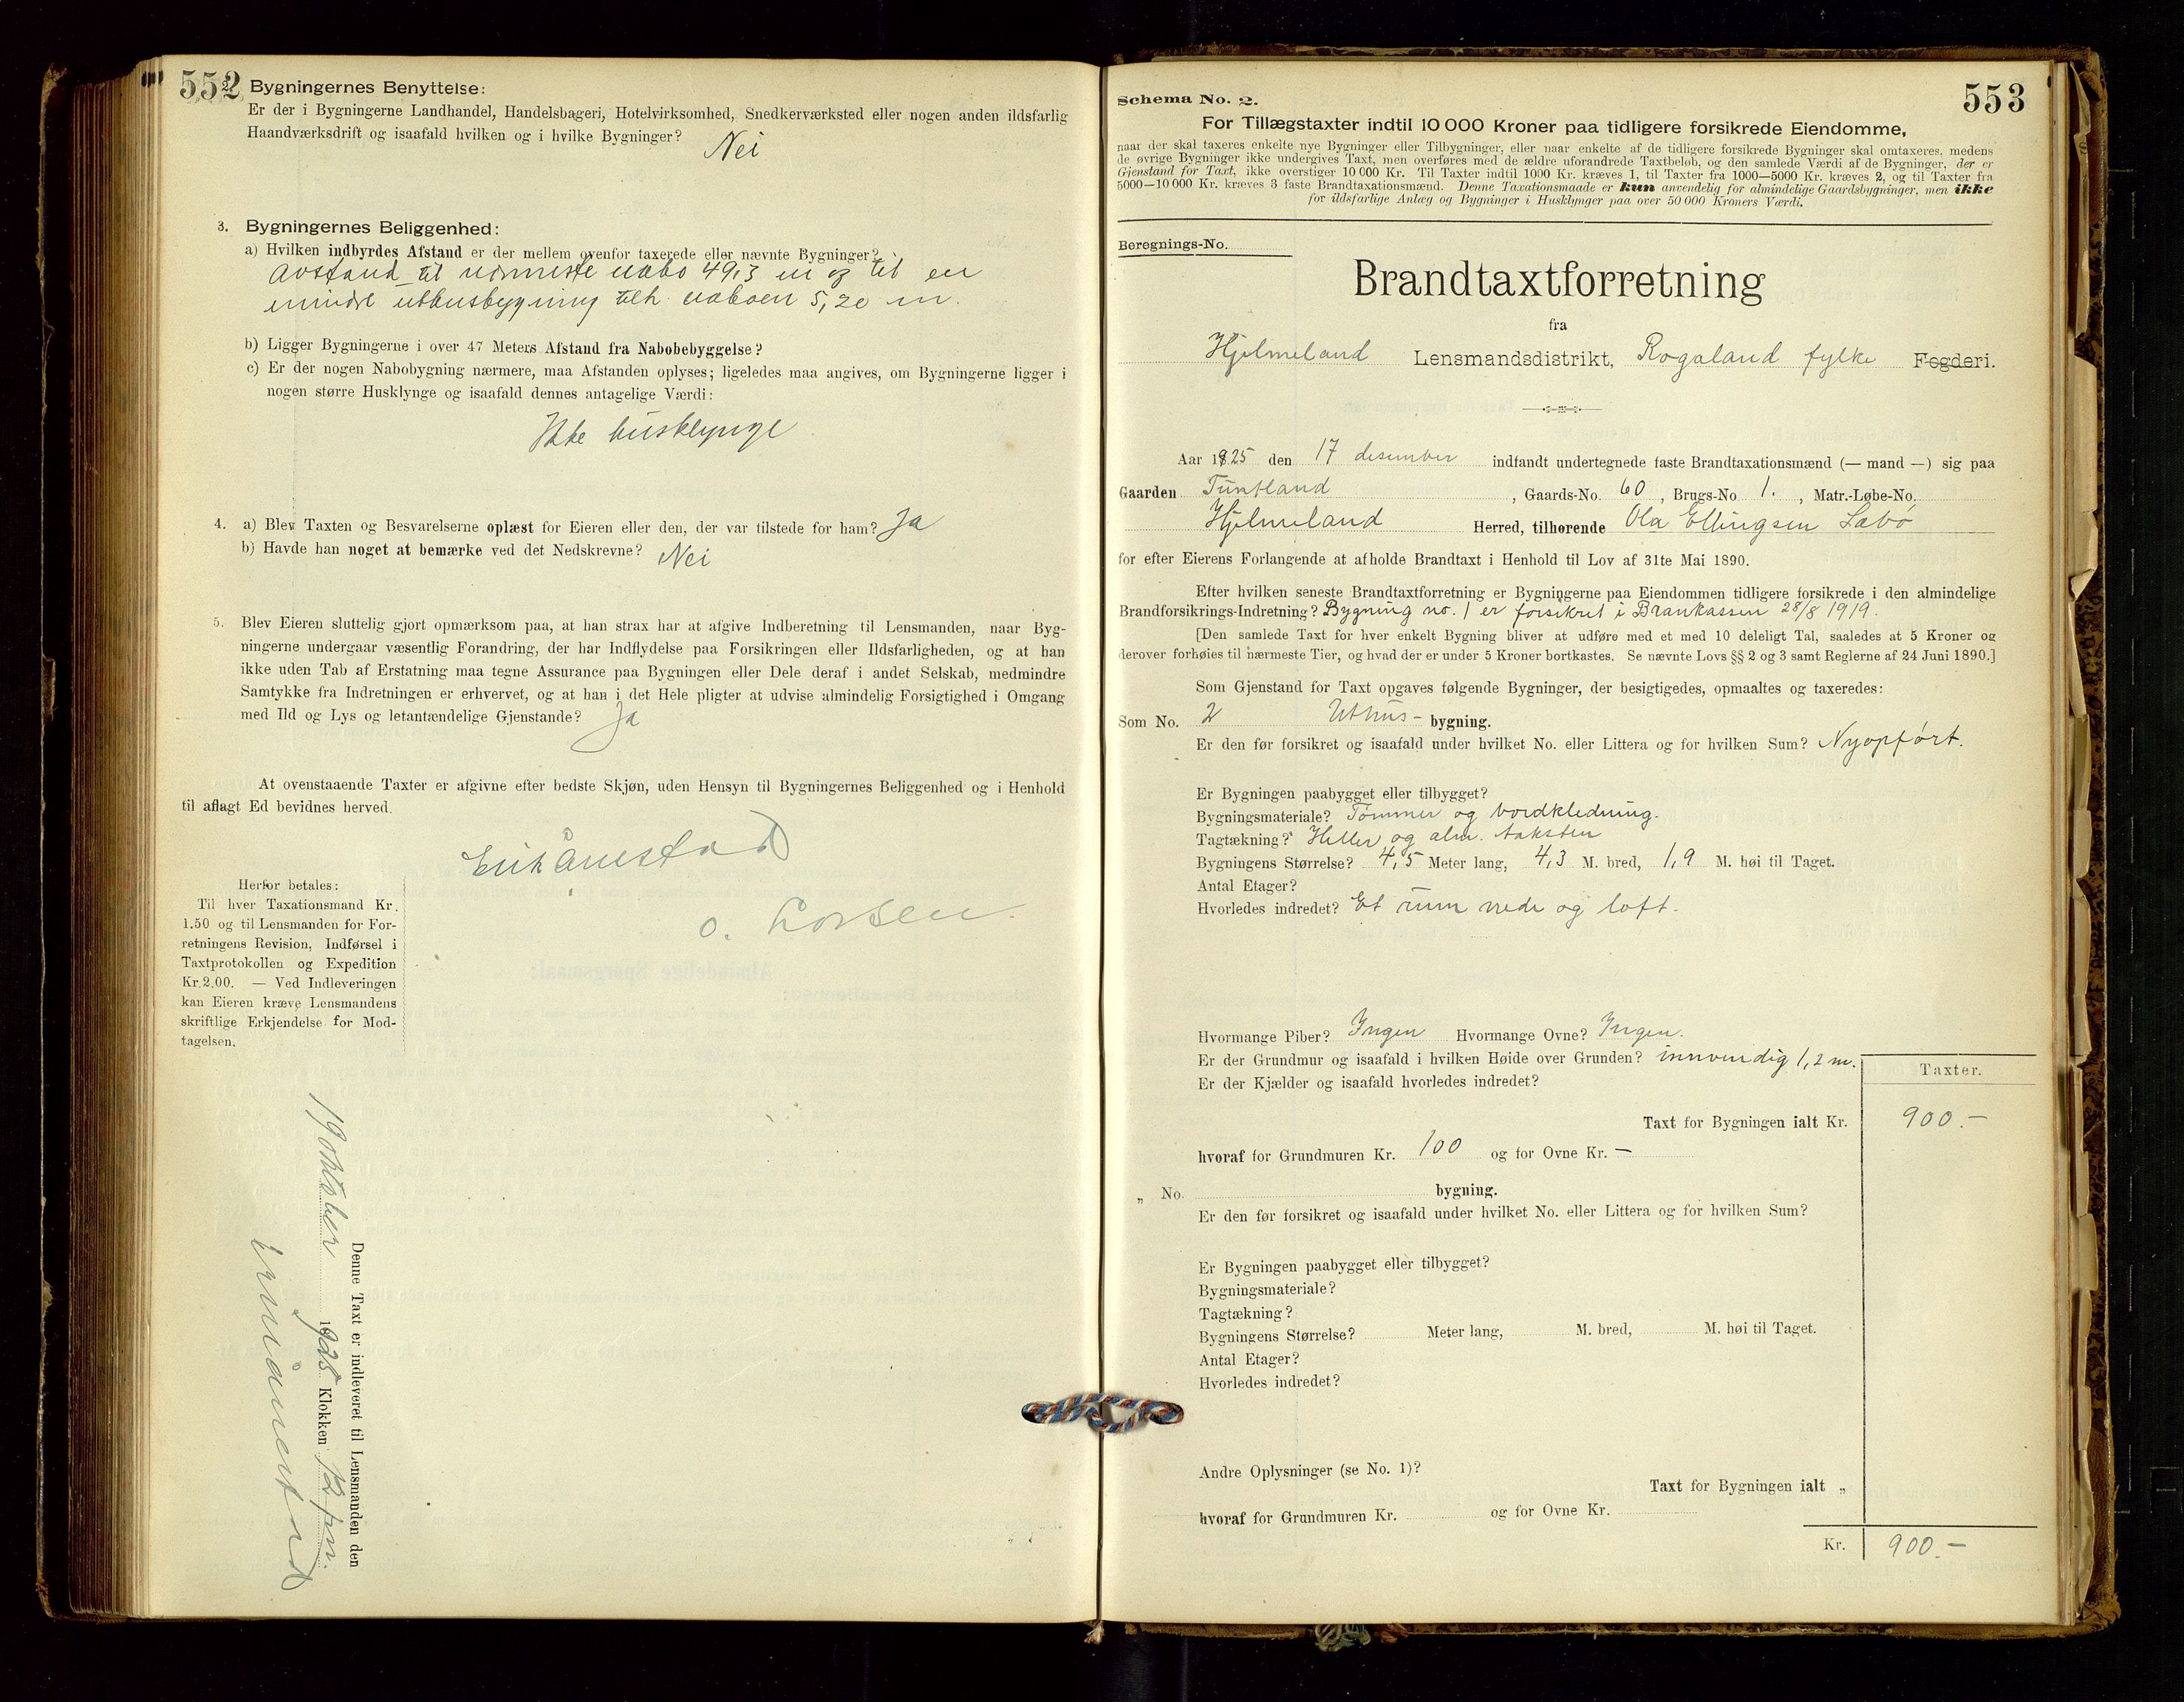 552 Bygningernes Benyttelse:
Er der i Bygningerne Landhandel, Handelsbageri, Hotelvirksomhed, Snedkerværksted eller nogen anden ildsfarlig
Haandværksdrift og isaafald hvilken og i hvilke Bygninger? Nei
3. Bygningernes Beliggenhed:
a) Hvilken indbyrdes Afstand er der mellem ovenfor taxerede eller nævnte Bygninger?
Avstand til nærmeste nabo 49,3 m og til en
mindre uthusbygning tilh. naboen 5,20 m.
b) Ligger Bygningerne i over 47 Meters Afstand fra Nabobebyggelse?
c) Er der nogen Nabobygning nærmere, maa Afstanden oplyses; ligeledes maa angives, om Bygningerne ligger i
nogen større Husklynge og isaafald dennes antagelige Værdi:
Ikke husklynge.
4. a) Blev Taxten og Besvarelserne oplæst for Eieren eller den, der var tilstede for ham? Ja
b) Havde han noget at bemærke ved det Nedskrevne? Nei
5. Blev Eieren sluttelig gjort opmærksom paa, at han strax har at afgive Indberetning til Lensmanden, naar Byg-
ningerne undergaar væsentlig Forandring, der har Indflydelse paa Forsikringen eller Ildsfarligheden, og at han
ikke uden Tab af Erstatning maa tegne Assurance paa Bygningen eller Dele deraf i andet Selskab, medmindre
Samtykke fra Indretningen er erhvervet, og at han i det Hele pligter at udvise almindelig Forsigtighed i Omgang
med Ild og Lys og letantændelige Gjenstande? Ja
At ovenstaaende Taxter er afgivne efter bedste Skjøn, uden Hensyn til Bygningernes Beliggenhed og i Henhold
til aflagt Ed bevidnes herved.
Erik Ånestad
O. Larsen.
Herfor betales:
Til hver Taxationsmand Kr.
1.50 og til Lensmanden for For-
retningens Revision, Indførsel i
Taxtprotokollen og Expedition
Kr. 2.00. — Ved Indleveringen
kan Eieren kræve Lensmandens
skriftlige Erkjendelse for Mod-
tagelsen.
Denne Taxt er indleveret til Lensmanden den
19 oktober 1925 Klokken 12 fm.
Erik Ånestad
553
Schema No. 2.
For Tillægstaxter indtil 10 000 Kroner paa tidligere forsikrede Eiendomme,
naar der skal taxeres enkelte nye Bygninger eller Tilbygninger, eller naar enkelte af de tidligere forsikrede Bygninger skal omtaxeres, medens
de øvrige Bygninger ikke undergives Taxt, men overføres med de ældre uforandrede Taxtbeløb, og den samlede Værdi af de Bygninger, der er
Gjenstand for Taxt, ikke overstiger 10 000 Kr. Til Taxter indtil 1000 Kr. kræves 1, til Taxter fra 1000—5000 Kr. kræves 2, og til Taxter fra
5000—10 000 Kr. kræves 3 faste Brandtaxationsmænd. Denne Taxationsmaade er kun anvendelig for almindelige Gaardsbygninger, men ikke
for ildsfarlige Anlæg og Bygninger i Husklynger paa over 50 000 Kroners Værdi.
Beregnings-No.
Brandtaxtforretning
fra
Hjelmeland Lensmandsdistrikt, Rogaland fylke Fogderi.
Aar 1925 den 17 desember indfandt undertegnede faste Brandtaxationsmænd (— mand —) sig paa
Gaarden Tuntland, Gaards-No. 60, Brugs-No 1., Matr.-Løbe-No.
Hjelmeland Herred, tilhørende Ola Ellingsen Sæbø
for efter Eierens Forlangende at afholde Brandtaxt i Henhold til Lov af 31te Mai 1890.
Efter hvilken seneste Brandtaxtforretning er Bygningerne paa Eiendommen tidligere forsikrede i den almindelige
Brandforsikrings-Indretning? Bygning no. 1 er forsikret i Brankassen 28/8 1919.
[Den samlede Taxt for hver enkelt Bygning bliver at udføre med et med 10 deleligt Tal, saaledes at 5 Kroner og
derover forhøies til nærmeste Tier, og hvad der er under 5 Kroner bortkastes. Se nævnte Lovs §§ 2 og 3 samt Reglerne af 24 Juni 1890.]
Som Gjenstand for Taxt opgaves følgende Bygninger, der besigtigedes, opmaaltes og taxeredes:
Som No. 2 Uthus- bygning.
Er den før forsikret og isaafald under hvilket No. eller Littera og for hvilken Sum? Nyopført.
Er Bygningen paabygget eller tilbygget?
Bygningsmateriale? Tømmer og bordkledning.
Tagtækning? Heller og alm. taksten
Bygningens Størrelse? 4,5 Meter lang, 4,3 M. bred, 1,9 M. høi til Taget.
Antal Etager?
Hvorledes indredet? Et rum nede og loft.
Hvormange Piber? Ingen Hvormange Ovne? Ingen.
Er der Grundmur og isaafald i hvilken Høide over Grunden? innvendig 1,2 m.
Er der Kjælder og isaafald hvorledes indredet?
Taxter.
Taxt for Bygningen ialt Kr. 900.—
hvoraf for Grundmuren Kr. 100 og for Ovne Kr. —
„ No. bygning.
Er den før forsikret og isaafald under hvilket No. eller Littera og for hvilken Sum?
Er Bygningen paabygget eller tilbygget?
Bygningsmateriale?
Tagtækning?
Bygningens Størrelse? Meter lang, M. bred, M. høi til Taget.
Antal Etager?
Hvorledes indredet?
Andre Oplysninger (se No. 1)?
Taxt for Bygningen ialt „
hvoraf for Grundmuren Kr. og for Ovne Kr.
Kr. 900.—